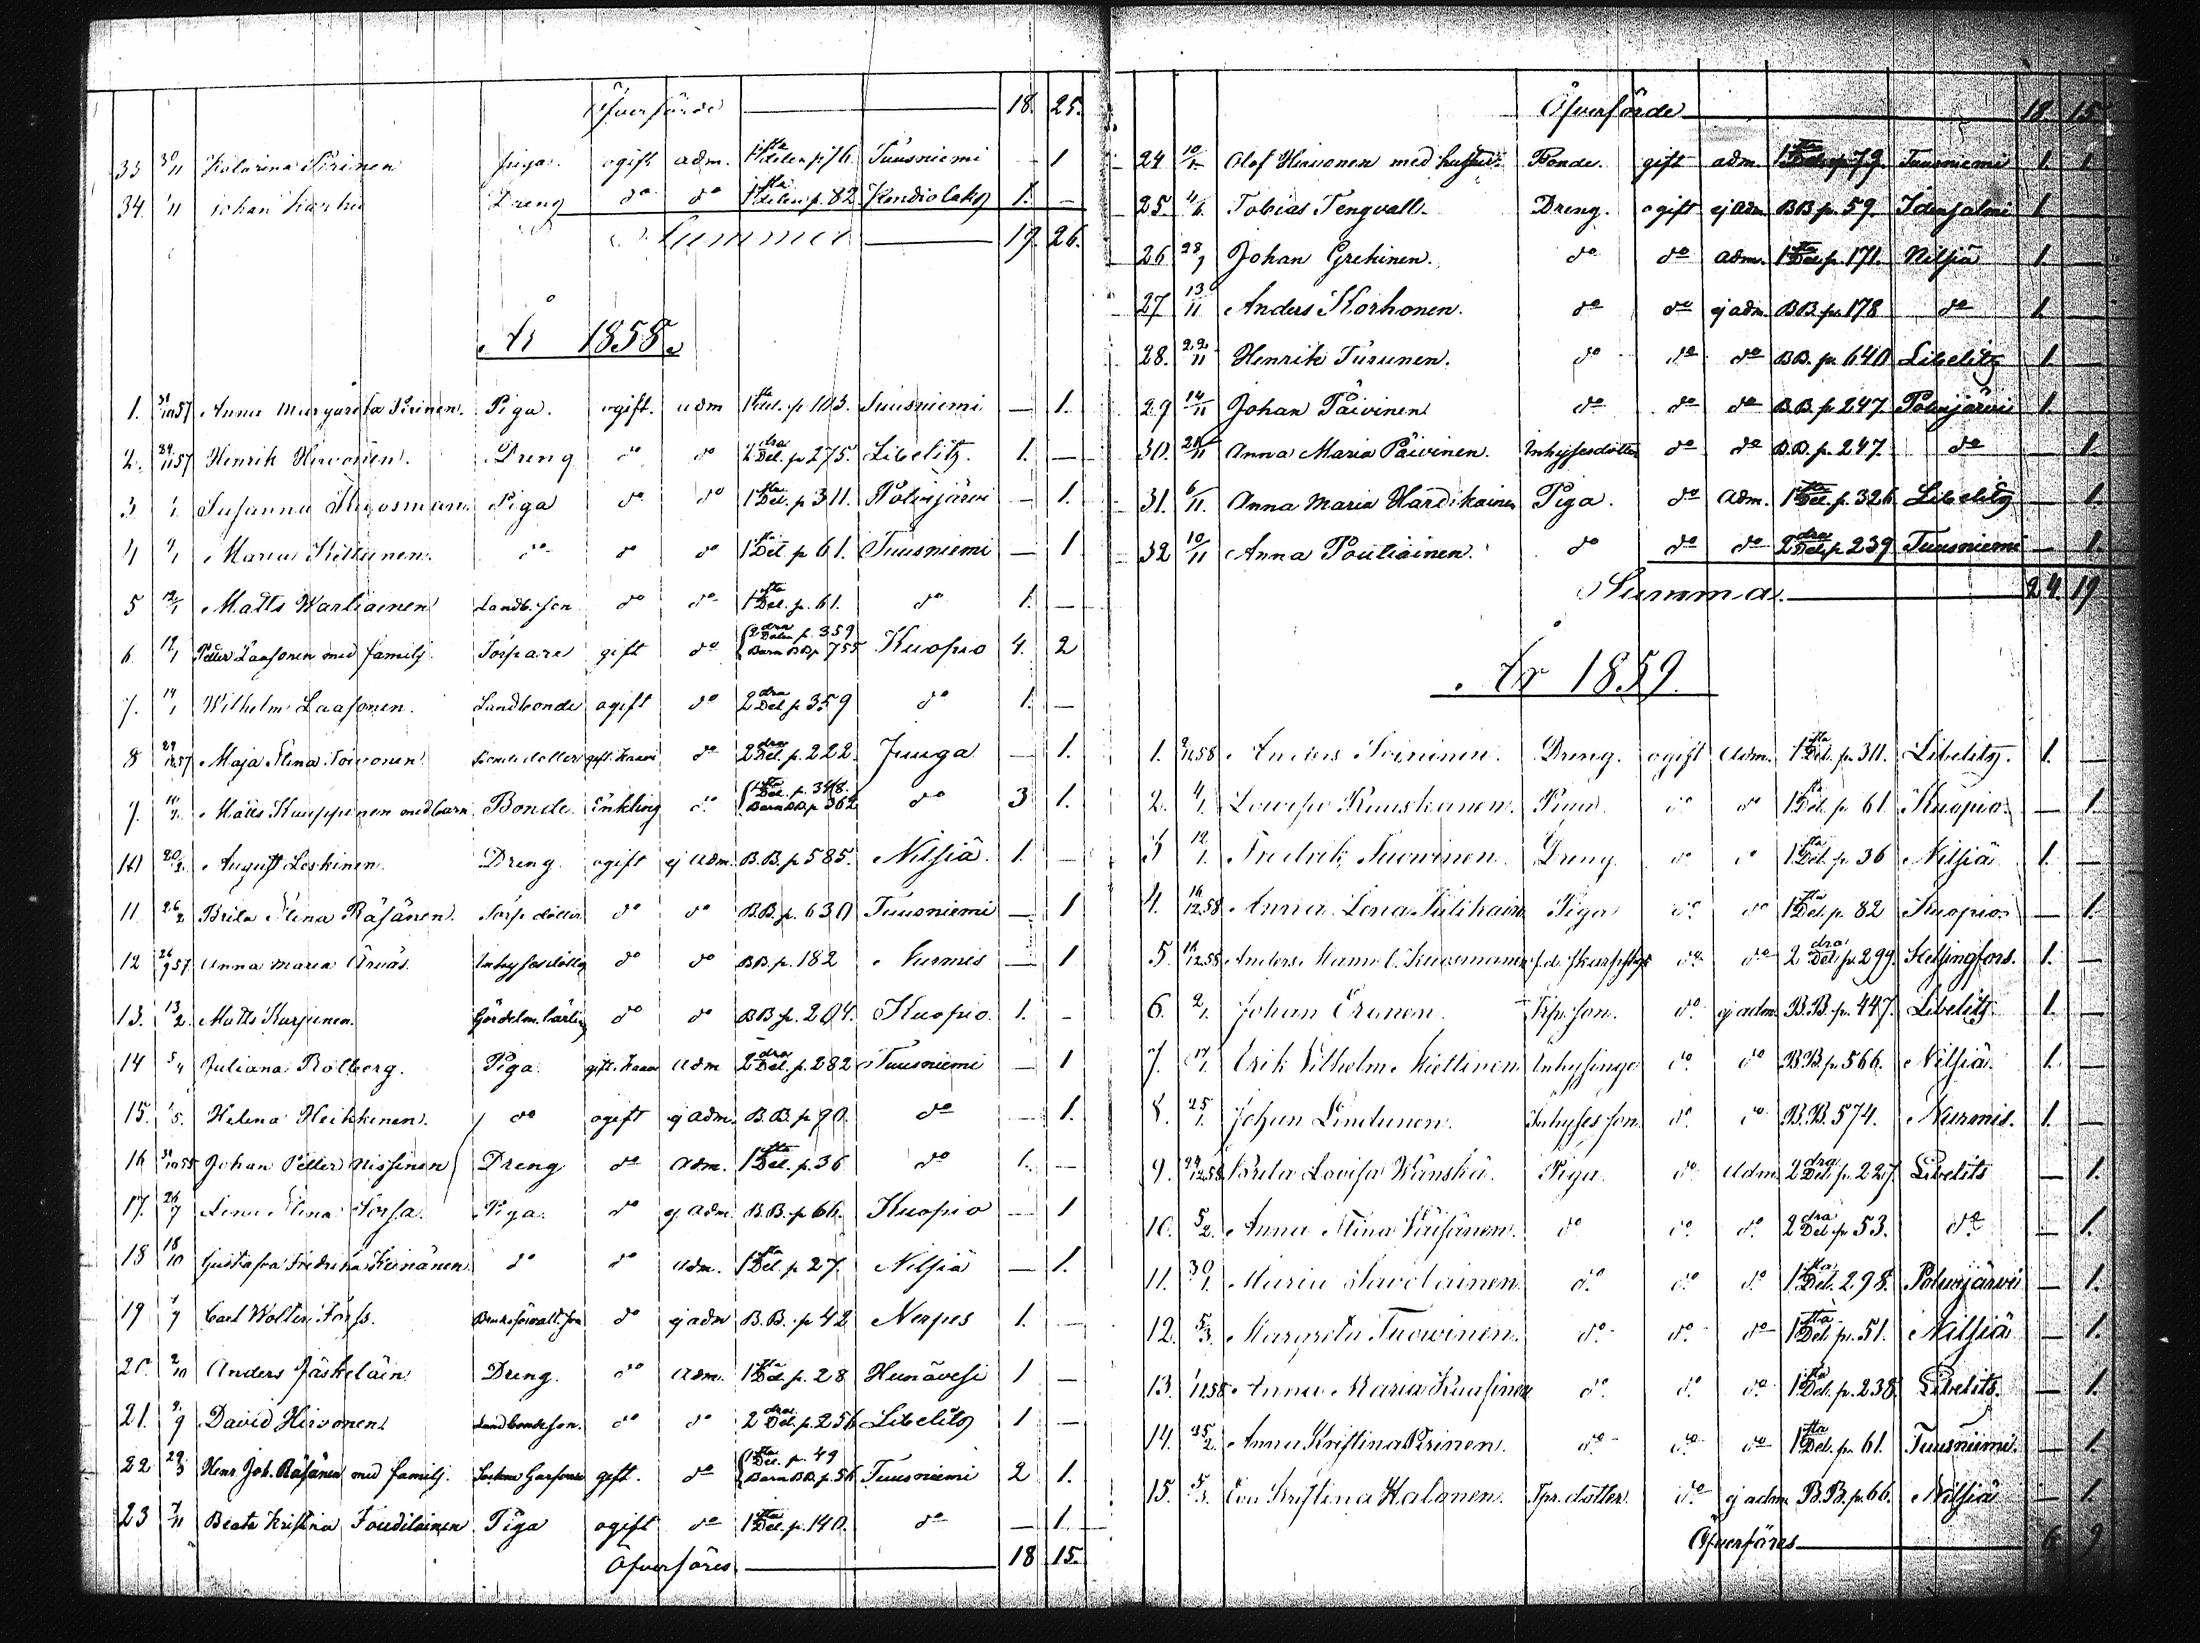 Öfverförde 18. 25.
33 30/11 Katarina Pirinen piga. ogift adm. 1sta delen p. 76. Tuusniemi — 1
34. 1/11 Johan Karhu Dreng do do 1sta delen p. 82 Kondiolaks 1. —
Summa 19. 26.
År 1858.
1. 31/10 57 Anna Margareta Pirinen. Piga. ogift. adm 1sta Del. p. 103. Tuusniemi — 1.
2. 29/11 57 Henrik Hirvonen. Dreng do do 2dra Del. p. 275. Libelitz. 1. —
3 Susanna Piga do do 1sta Del. p. 311. Polvijärvi — 1.
4 4/1 Maria Kettunen. do do do 1sta Del. p. 61. Tuusniemi — 1
5 12/1 Matts Wartiainen Landb. son do do 1sta Del. p. 61. do 1. —
6 12/1 Petter Laasonen med familj. Torpare gift do 2dra Delen p. 359 Barn BB p. 755 Kuopio 4. 2
7. 14/1 Wilhelm Laasonen. Landbonde ogift do 2dra Del. p. 359 do 1. —
8 29/12 57 Maja Stina Toivonen Bondedotter gift. Kaavi do 2dra Del. p. 222. Juuga — 1.
9. Matts Kauppinen med barn Bonde. Enkling do 1sta Del. p. 348. Barn BB p. 362 do 3 1.
10 20/2. August Leskinen. Dreng. ogift ej adm. B.B. p. 585. Nilsiä. 1. —
11 26/2 Brita Stina Räsänen. Torp. dotter do do B.B. p. 630 Tuusniemi — 1
12 26/9 57 Anna Maria Inhysesdotter do do BB. p. 182 Nurmis — 1
13. 13/2. Matts Kurjinen. Gördelm. lärling do do BB p. 204. Kuopio. 1. —
14 5/4 Juliana Rotberg. Piga. gift. Kaavi adm 2dra Del. p. 282 Tuusniemi — 1
15. 1/5. Helena Heikkinen. do ogift ej adm. B.B. p. 90. do — 1.
16 31/10 55 Johan Petter Nissinen Dreng do adm. 1sta Del. p. 36 do 1. —
17. 26/7 Lena Stina Torsa. Piga. do ej adm. B.B. p. 66. Kuopio — 1
18 18/10 Gustafva Fredrika Keinänen do do adm. 1sta Del. p. 27. Nilsiä — 1.
19 Carl Wolter Forss. Bruksförvalt. son do ej adm B.B. p. 42 Nerpes 1. —
20. 2/10 Anders Jäskeläin Dreng. do adm. 1sta Del. p. 28 Heinävesi 1 —
21. 2/9 David Hirvonen Landbondeson. do do 2dra Del. p. 256 Libelitz 1 —
22 29/3 Henr. Joh. Räsänen med familj. gift. do 1sta Del. p. 49 Barn BB. p. 56 Tuusniemi 2 1.
23 7/11 Beata Kristina Foudilainen Piga ogift do 1sta Del. p. 140. do — 1.
Öfverföres 18 15.
Öfverförde 18. 15.
24 Olof Hirvonen med hustru Bonde. gift adm. 1sta Delen p. 79. Tuusniemi 1. 1.
25. 4/6. Tobias Tengvall. Dreng. ogift ej adm. BB p. 59. Idensalmi 1. —
26 28/9 Johan Grekinen. do do adm. 1sta Del. p. 171. Nilsiä 1. —
27 13/11 Anders Korhonen. do do ej adm BB. p. 178 do 1. —
28. 22/11 Henrik Turunen. do do do BB. p. 640 Libelitz 1. —
29 14/11 Johan Päivinen do do do B.B. p. 247. Polvijärvi 1. —
30. 21/11 Anna Maria Päivinen. Inhysesdotter do do B.B. p. 247. do 1.
31. 6/11. Anna Maria Hardikainen Piga. do adm. 1sta Del. p. 326 Libelitz — 1.
32 10/11 Anna Poutiainen. do do do 2dra Del. p. 239 Tuusniemi — 1.
Summa. 24. 19
År 1859.
1. Anders Soininen. Dreng. ogift adm. 1sta Del. p. 311. Libelitz. 1. —
2. 4/1. Lovisa Ruuskanen. do do 1sta Del. p. 61 Kuopio. — 1
3 12/1. Fredrik Tuovinen. Dreng do do 1sta Del. p. 36 Nilsiä 1. —
4. 16/12 58 Anna Lena Piga do do 1sta Del. p. 82 Kuopio. — 1.
5. 14/12 58 Anders do do 2dra Del. p. 299. Helsingfors. 1. —
6. 2/1. Johan Eronen. Trp. son. do ej adm. B.B. p. 447. Libelitz. 1. —
7. 17/1. Erik Vilhelm Miettinen Inhysinge do do BB p. 566. Nilsiä. 1. —
8. 25/1. Johan Lindunen. Inhyses son. do do B.B. 574. Nurmis. 1. —
9. 24/12 58 Brita Lovisa Wänskä. Piga. do adm 2dra Del. p. 227. Libelits — 1.
10. 5/2. Anna Stina Väisänen. do do do 2dra Del. p. 53. do — 1.
11. 30/1. Maria Savolainen do do do 1sta Del. 298. Polvijärvi — 1.
12. 5/3. Margreta Tuovinen. do do do 1sta Del. p. 51. Nilsiä — 1.
13. 1/12 58 Anna Maria Kuasinen do do do 1sta Del. p. 238. Libelits. — 1.
14. 25/2. Anna Kristina Pirinen. do do do 1sta Del. p. 61. Tuusniemi. — 1.
15. 5/3. Eva Kristina Halonen. Tpr. dotter. do ej adm. B.B. p. 66. Nilsiä — 1.
Öfverföres 6. 9.